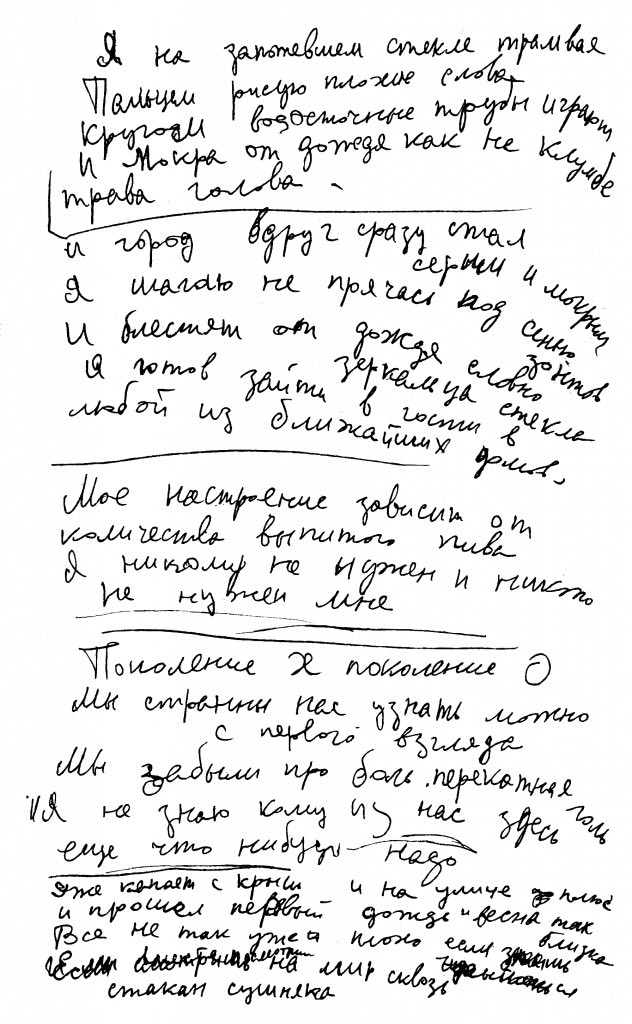 Я на запотевшем стекле трамвая
Пальцем рисую плохие слова
Кругом водосточные трубы играют
И мокра от дождя как на клумбе
трава голова.
и город вдруг сразу стал
серым и мокрым
Я шагаю не прячась под сенью зонтов
И блестят от дождя словно
зеркальца стекла
Я готов зайти в гости в
любой из ближайших домов.
Мое настроение зависит от
количества выпитого пива
Я никому не нужен и никто
не нужен мне
Поколение X поколение 0
Мы странны нас узнать можно
с первого взгляда
Мы забыли про боль. перекатная голь
И я не знаю кому из нас здесь
еще что нибудь надо
Уже капает с крыш и на улице плюс
и прошел первый дождь и весна так близка
Все не так уже и плохо если
на мир сквозь
стакан сушняка